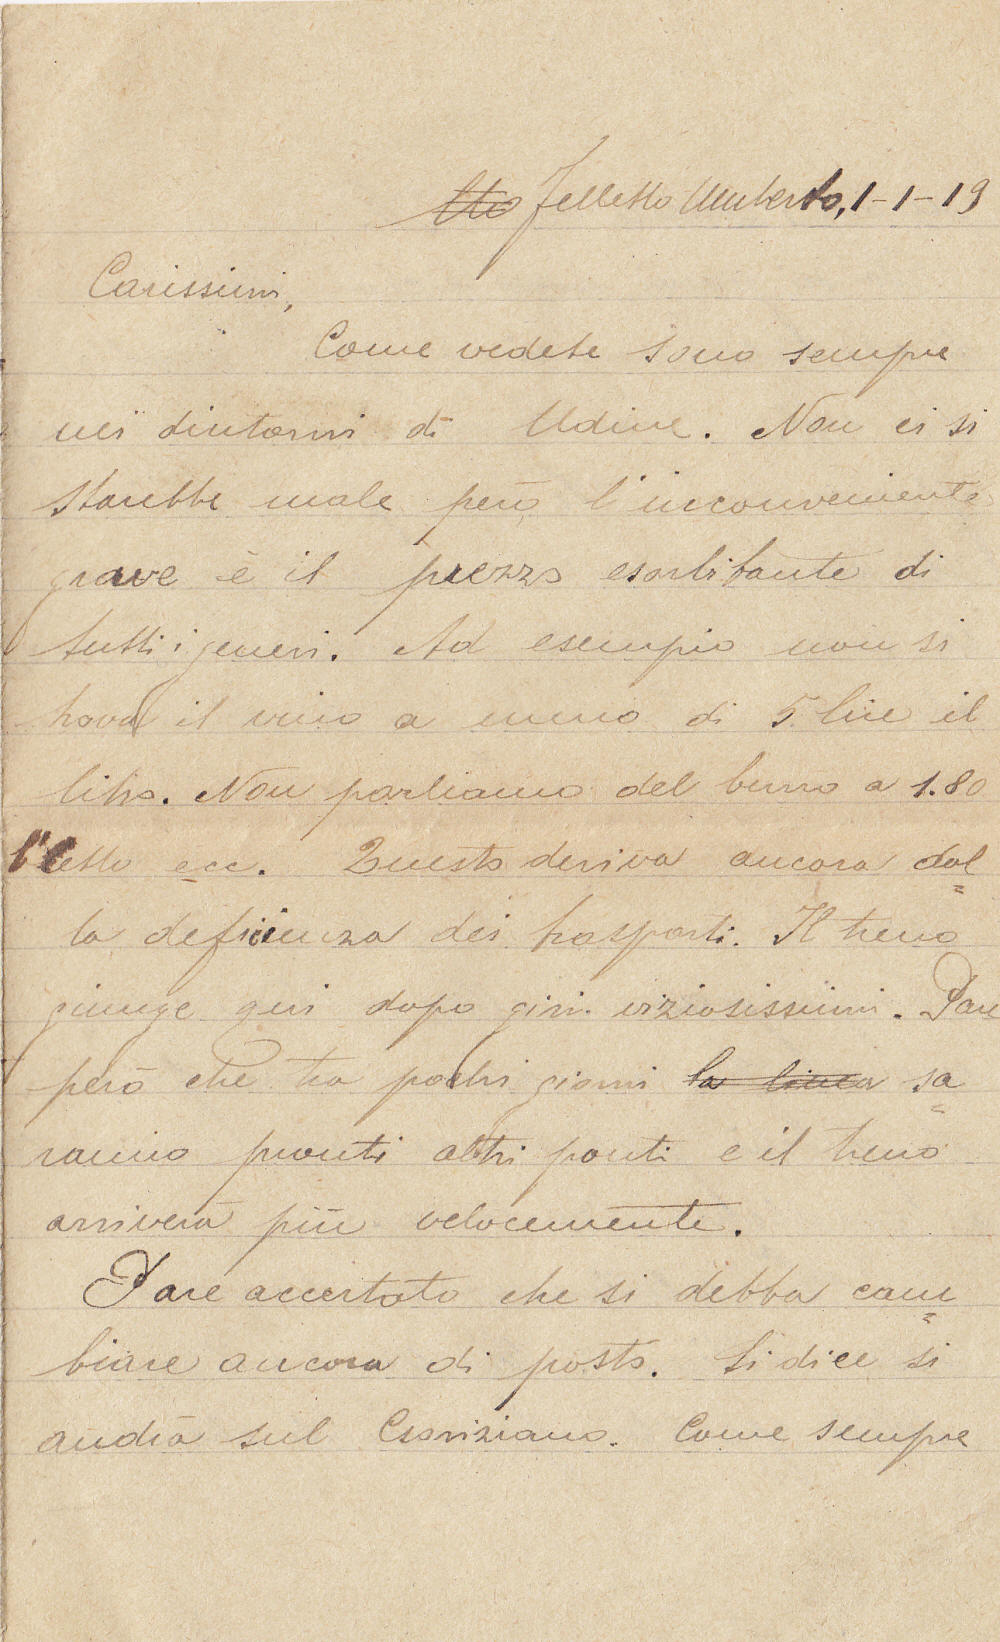 Felletto Umberto, 1-1-19
Carissimi,
Come vedete sono sempre
nei dintorni di Udine. Non ci si
starebbe male però l'inconveniente
grave è il prezzo esorbitante di
tutti i generi. Ad esempio non si
trova il vino a meno di 5 lire il
litro. Non parliamo del burro a 1.80
l'etto ecc. Questo deriva ancora dal=
la deficienza dei trasporti. Il treno
giunge qui dopo giri viziosissimi. Pare
però che tra pochi giorni la linea sa=
ranno pronti altri ponti e il treno
arriverà più velocemente.
Pare accertato che si debba cam=
biare ancora di posto. Si dice si
andrà sul Goriziano. Come sempre